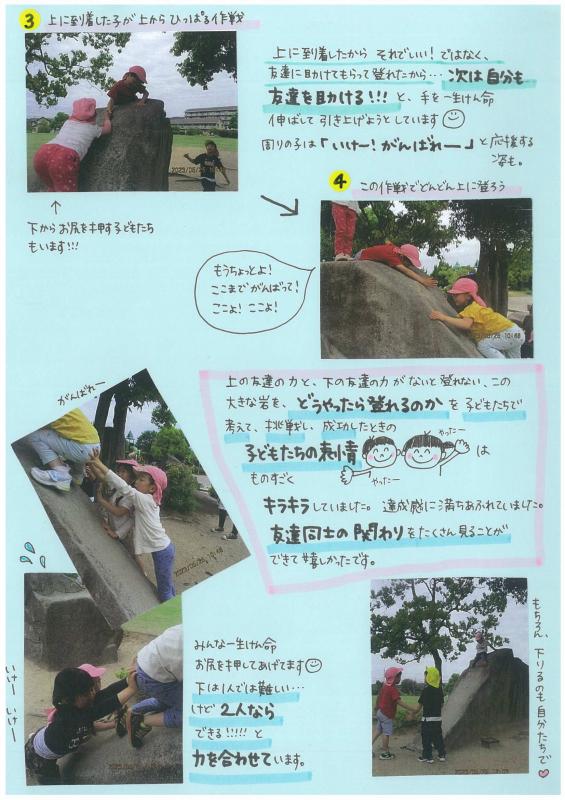 3 上に到着した子が上からひっぱる作戦
上に到着したから それでいい！ではなく、
友達に助けてもらって登れたから… 次は自分も
友達を助ける!!! と、手を一生けん命
伸ばして引き上げようとしています
周りの子は「いけー！がんばれー」と応援する
姿も。
下からお尻を押す子どもたち
もいます!!!
4 この作戦でどんどん上に登ろう
もうちょっとよ！
ここまでがんばって！
ここよ！ここよ！
がんばれー
上の友達の力と、下の友達の力がないと登れない、この
大きな岩を、どうやったら登れるのかを子どもたちで
考えて、挑戦し、成功したときの
子どもたちの表情
やったー
やったー
は
ものすごく
キラキラしていました。達成感に満ちあふれていました。
友達同士の関わりをたくさん見ることが
できて嬉しかったです。
いけー いけー
みんな一生けん命
お尻を押してあげてます
下は1人では難しい…
けど 2人なら
できる!!!!! と
力を合わせています。
もちろん、下りるのも自分たちで